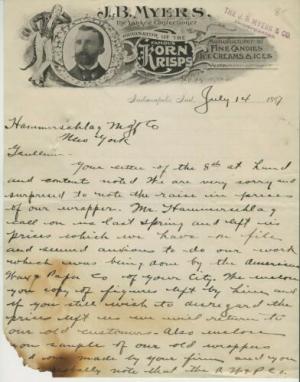 J.B. MYERS.
The Yankee Confectioner
ORIGINATOR OF THE
FAMOUS
KORN
KRISPS
MANUFACTURER OF
FINE CANDIES
ICE CREAMS & ICES
THE J. B. MYERS & CO.
Indianapolis, Ind. July 14 189
Hammerschlag Mfg Co
New York
Gentlemen
Your letter of the 8th at hand
and content noted We are very sorry and
surprised to note the raise in price
of our wrapper. Mr Hammerschlag
call on us last spring and left us
prices which we have on file
and seemed anxious to do our work
which was being done by the American
Wax & Paper Co of your City. We enclose
you copy of figures left by him and
if you still wish to disregard the
prices left us we will return to
our old customers. Also enclose
you sample of our old wrappers
made by your firm and you
probably note that the A. W & P Co.